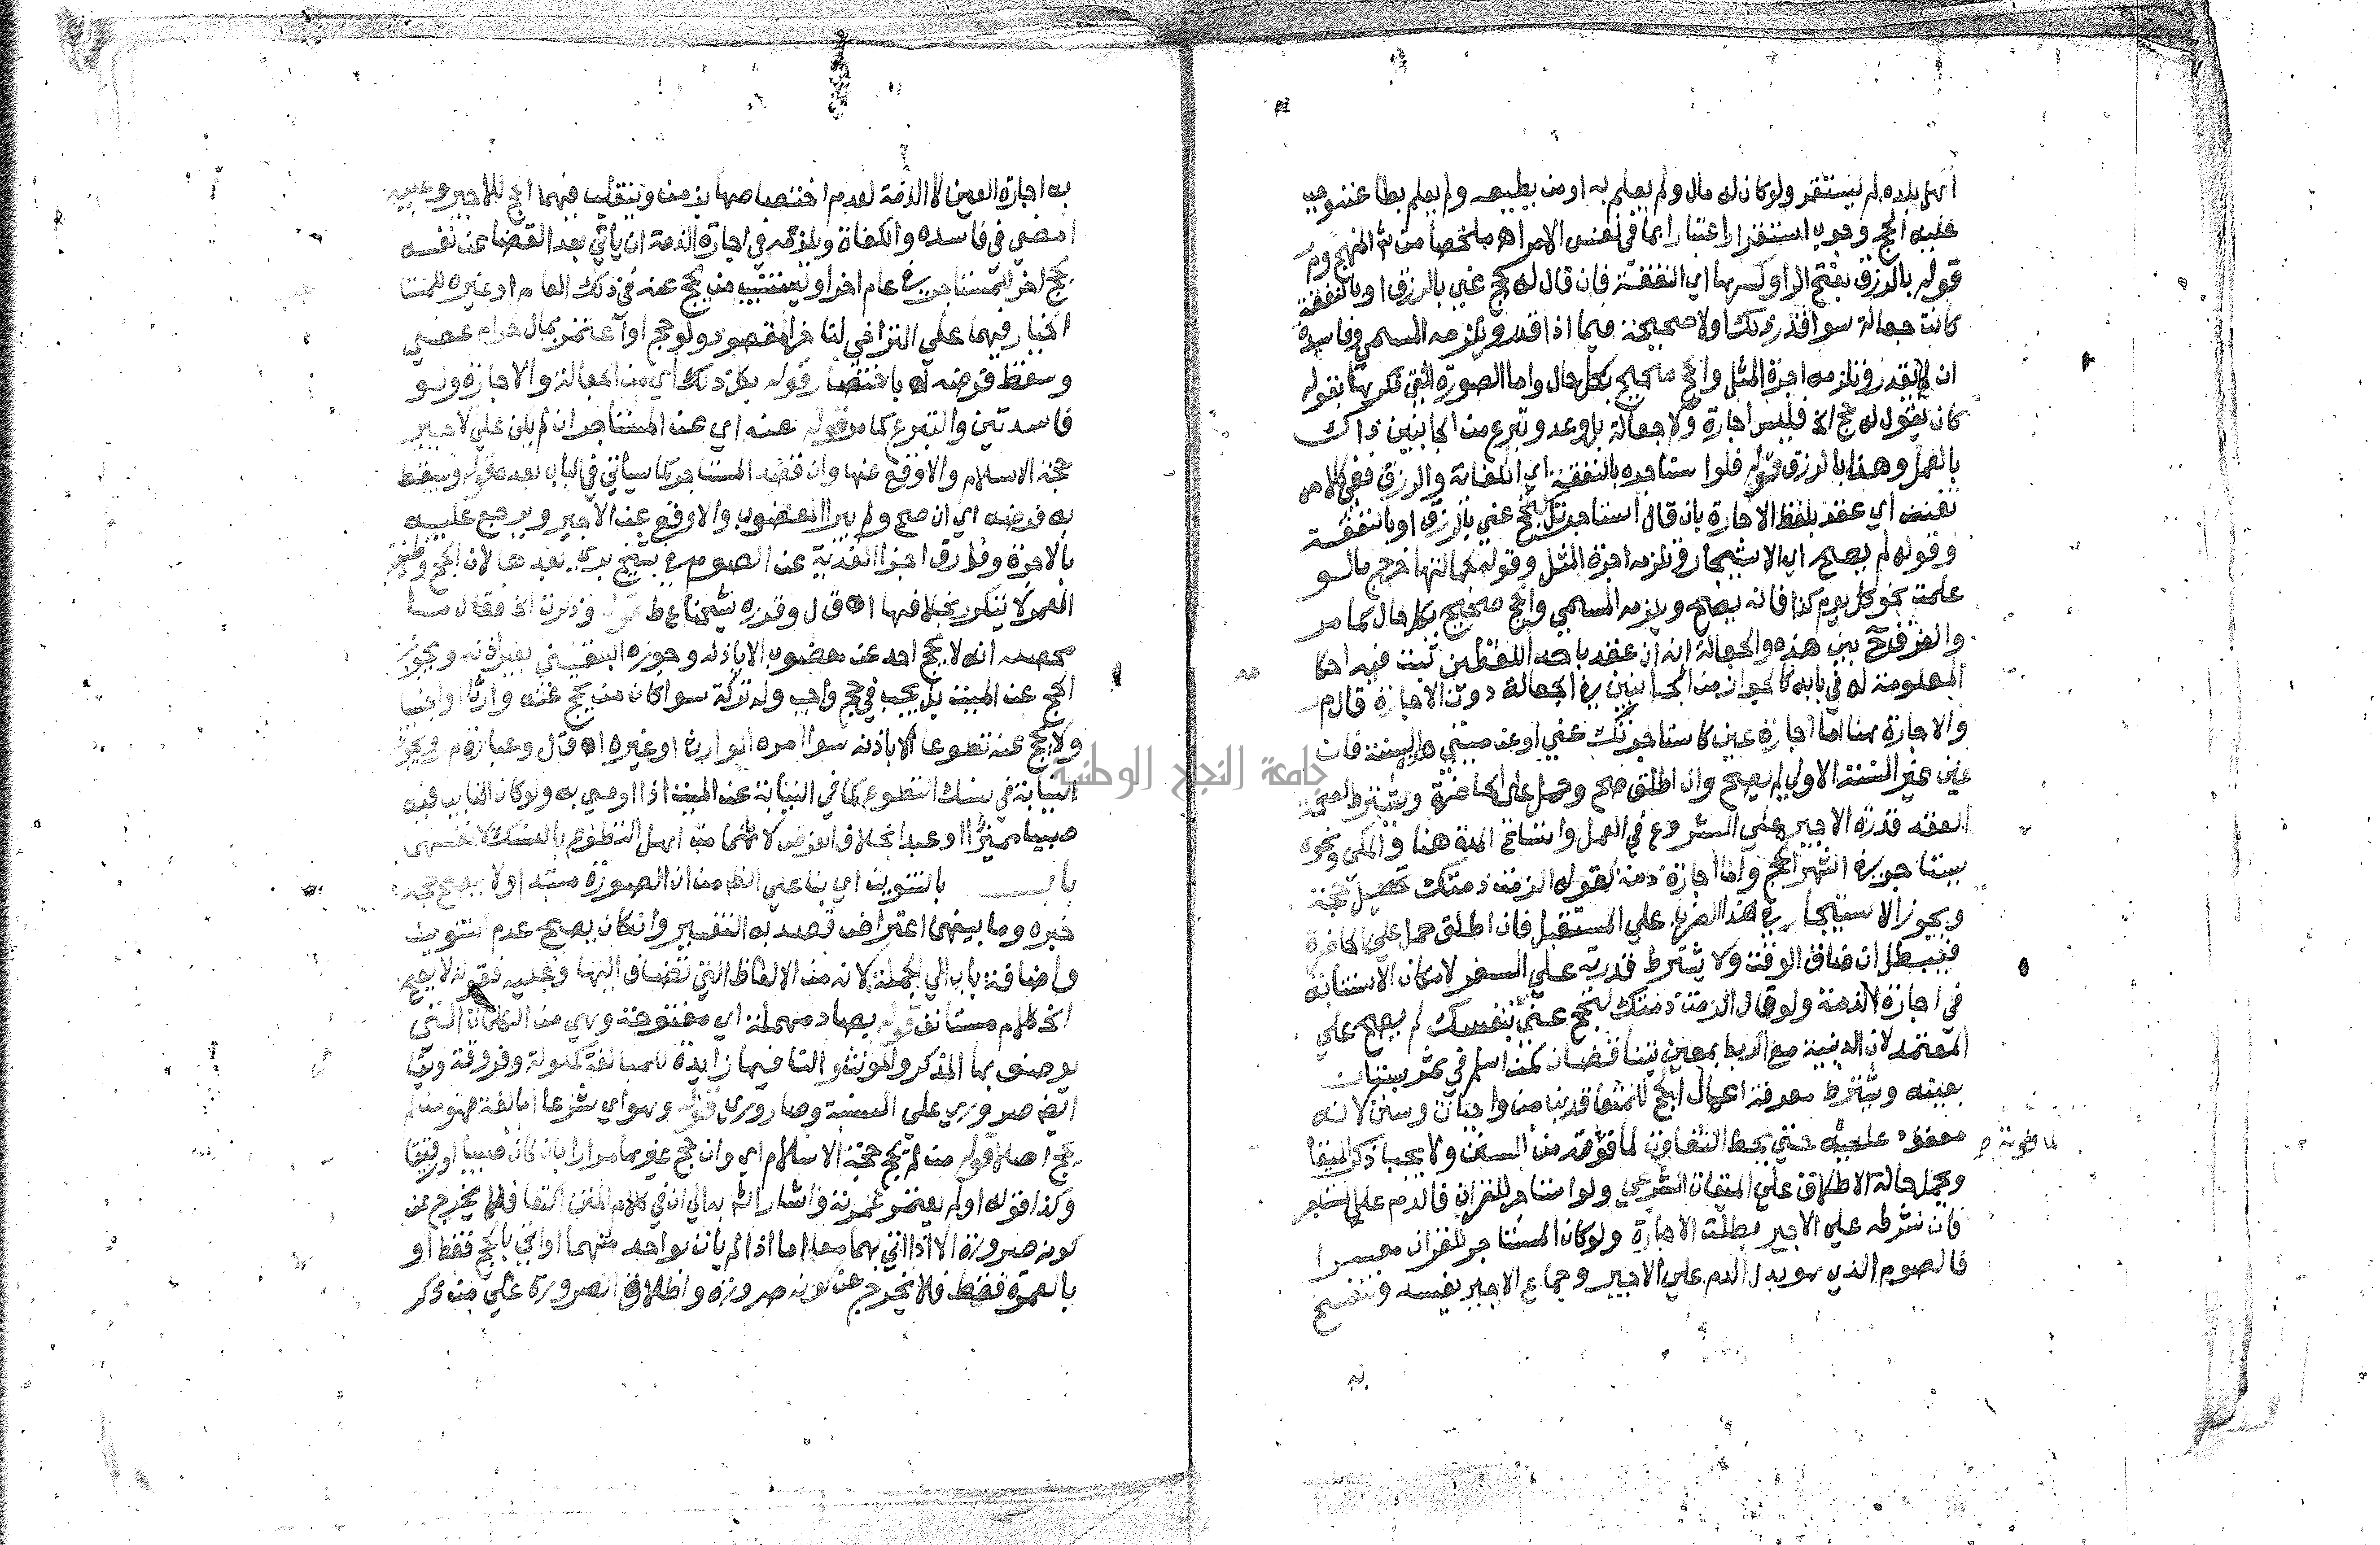 اهل بلده لم يستقر ولو كان له مال ولم يعلم به او من يطيعه ولم يعلم بطاعته وجب
عليه الحج وجوب استقرار اعتبارا بما في نفس الامر اه ملخصا من المنهج وم ر
قوله بالرزق بفتح الرا وكسرها اي النفقة فان قال له حج عني بالرزق او بالنفقة
كانت جعالة سوا قدر ذلك اولا صحيحة فيما اذا قدر ويلزمه المسمى وفاسدة
ان لم يقدر وتلزمه اجرة المثل والحج صحيح بكل حال واما الصورة التي بقوله
كان يقول له حج الخ فليس اجارة ولا جعالة بل وعد وتبرع من الجانبين ذاك
بالعمل وهذا بالرزق قوله فلو استاجره بالنفقة اي الكفاية والرزق ففي كلامه
تفنن اي عقد بلفظ الاجارة بان قال استاجرتك لتحج عني بالرزق او بالنفقة
وقوله لم يصح اي الاستيجار وتلزمه اجرة المثل وقوله لجهالتها خرج ما لو
علمت نحو كل يوم كذا فانه يصح ويلزمه المسمى والحج صحيح بكل حال كما مر
والفرق بين هذه والجعالة انه ان عقد باحد اللفظين ثبت فيه احكا
المعلومة له في بابه كالجواز من الجانبين في الجعالة دون الاجارة قال م ر
والاجارة هنا اما اجارة عين كاستاجرتك عني او عن ميتي هذه السنة فان
عين غير السنة الاولى لم يصح وان اطلق صح وحمل على الحاضرة ويشترط لصحة
العقد قدرة الاجير على الشروع في العمل واتساع المدة هنا والمكي ونحوه
يستاجر في اشهر الحج واما اجارة ذمة كقوله الزمت ذمتك تحصيل حجة
ويجوز الاستيجار في هذا الضرب على المستقبل فان اطلق حمل على الحاضرة
فيبطل ان ضاق الوقت ولا يشترط قدرته على السفر لامكان الاستنابة
في اجارة الذمة ولو قال الزمت ذمتك لتحج عني بنفسك لم يصح على
المعتمد لان الدينية مع الربط بمعين يتناقضان كمن اسلم في ثمر بستان
بعينه ويشترط معرفة اعمال الحج للمتعاقدين من واجبات وسنن لانه
معقود عليه حتى يحط التفاوت لما فوته من السنن ولا يجب ذكر الميقا
ويحمل حالة الاطلاق على الميقات الشرعي ولو استاجر للقران فالدم على المستاجر
فان شرطه على الاجير بطلت الاجارة ولو كان المستاجر للقران معسرا
فالصوم الذي هو بدل الدم على الاجير وجماع الاجير يفسده وتنفسخ
به اجارة العين لا الذمة لعدم اختصاصها بزمن وينقلب فيهما الحج للاجير وعليه
المضي في فاسده والكفارة ويلزمه في اجارة الذمة ان ياتي بعد القضا عن نفسه
بحج اخر للمستاجر في عام اخر او يستنيب من يحج عنه في ذلك العام او غيره للمستا
الخيار فيهما على التراخي لتاخر المقصود ولو حج او اعتمر بمال حرام عصى
وسقط فرضه اه باختصار قوله بكل ذلك اي من الجعالة والاجارة ولو
فاسدتين والتبرع كما مر قوله عنه اي عن المستاجر ان لم يكن على الاجير
حجة الاسلام والا وقع عنها وان قصد المستاجر كما سياتي في الباب بعده قوله ويسقط
به فرضه اي ان صح ولم يبرا المعضوب والا وقع عن الاجير ويرجع عليه
بالاجرة وفارق اجزا الفدية عن الصوم في شيخ بعدها لان الحج وظيفة
العمر لا يتكرر بخلافها اه ق ل وقدره شيخنا ع ط قوله وذكرت الخ فقال ما
محصله انه لا يحج احد عن معضوب الا باذنه وجوزه البلقيني بغير اذنه ويجوز
الحج عن الميت بل يجب في حج واجب وله تركة سوا كان من يحج عنه وارثا او اجنبيا
ولا يحج عنه تطوعا الا باذنه سوا امره الوارث او غيره اه ق ل وعبارة م ر ويجوز
النيابة في نسك التطوع كما في النيابة عن الميت اذا اوصى به ولو كان النايب فيه
صبيا مميزا او عبدا بخلاف الفرض لانهما من اهل التطوع بالنسك لانفسهما
باب بالتنوين اي بنا على ان الصرورة مبتدا ولا يصح حجه
خبره وما بينهما اعتراض قصد به التفسير وان كان يصح عدم التنوين
واضافة باب الى الجملة لانه من الالفاظ التي تضاف اليها وعليه فقوله لا يصح
الخ كلام مستانف قوله بصاد مهملة اي مفتوحة وهي من الكلمات التي
يوصف بها المذكر والمونث والتا فيها زايدة للمبالغة كملولة وفروقة ويقا
ايضا صروري على النسبة وصاروري قوله وهو اي شرعا اما لغة فهو من لم
يحج اصلا قوله من لم يحج حجة الاسلام اي وان حج غيرها مرارا بان كان صبيا او رقيقا
وكذا قوله او لم يعتمر عمرته واشار الى ان في كلام المتن اكتفا فلا يخرج عن
كونه صرورة الا اذا اتى بهما معا اما اذا لم يات بواحد منهما او اتى بالحج فقط او
بالعمرة فقط فلا يخرج عن كونه صرورة واطلاق الصرورة على من ذكر
جامعة النجاح الوطنية